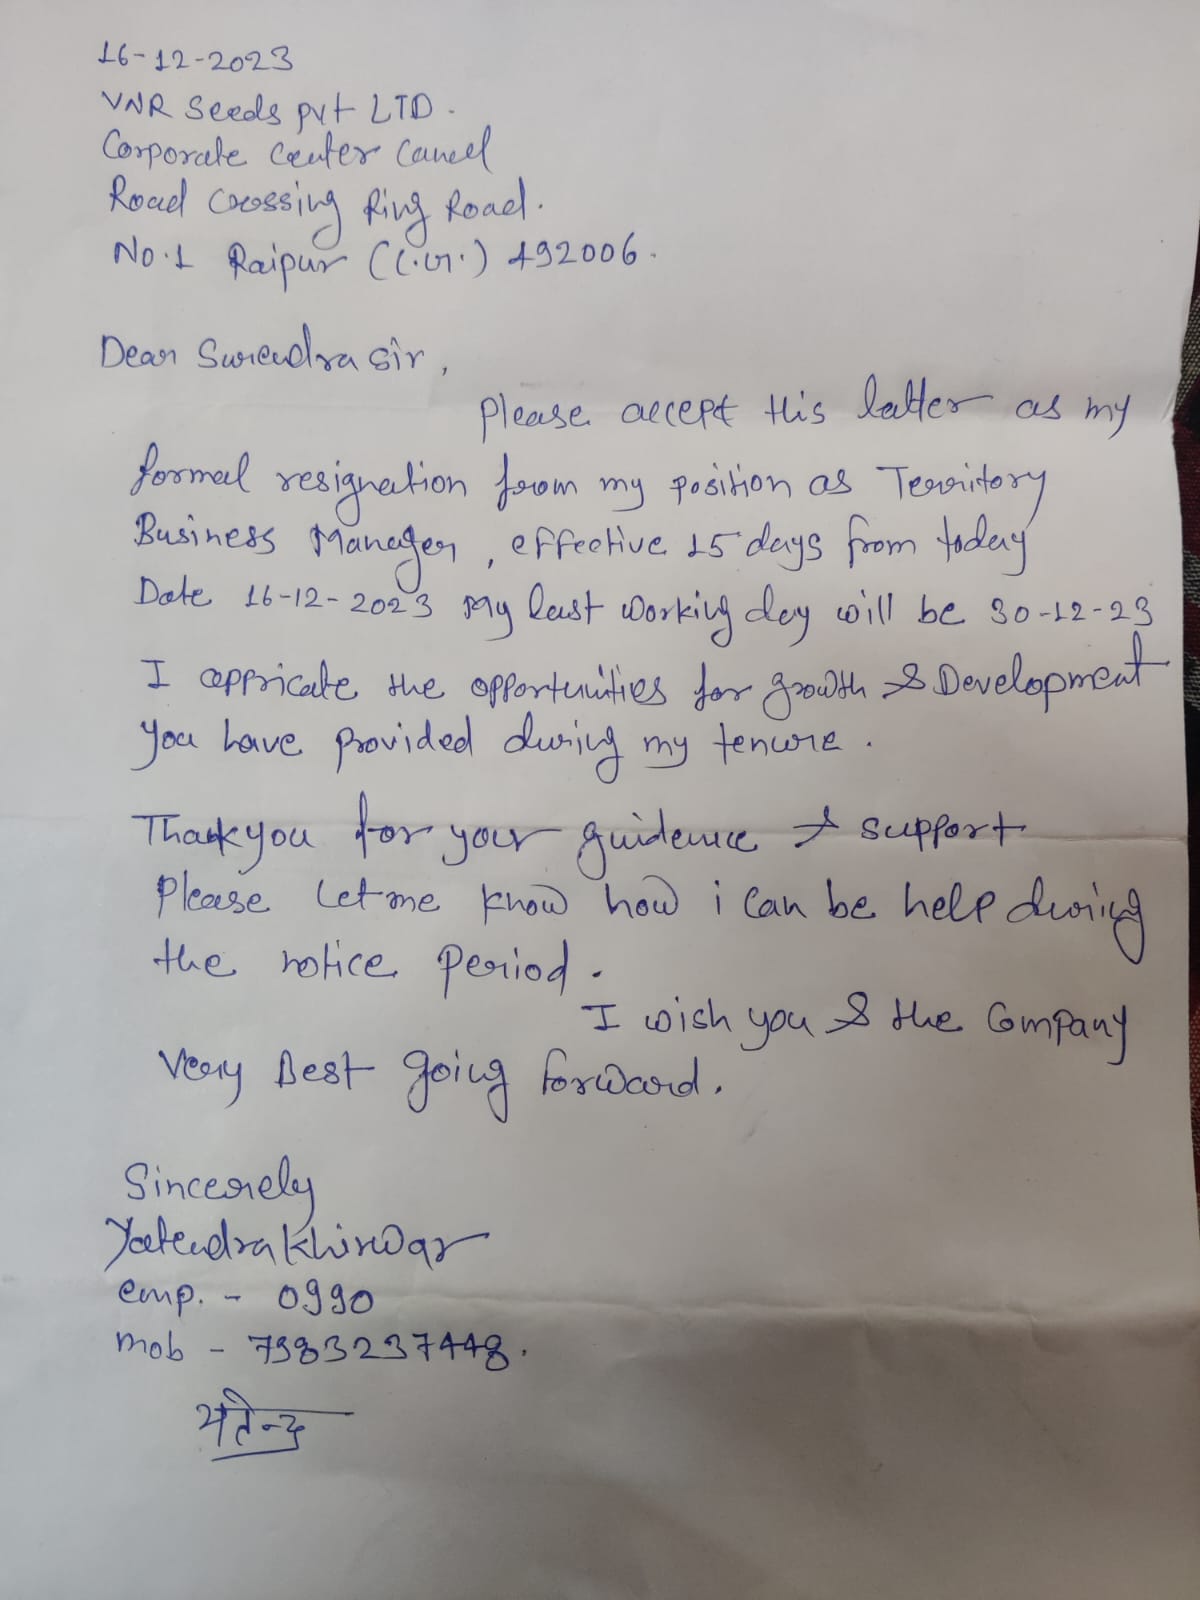 16-12-2023
VNR Seeds pvt LTD.
Corporate Center Canel
Road Crossing Ring Road.
No.1 Raipur (C.G.) 492006.
Dear Surendra sir,
Please accept this latter as my
formal resignation from my position as Territory
Business Manager, effective 15 days from today
Date 16-12-2023 My last working day will be 30-12-23
I appricate the opportunities for growth & Development
you have provided during my tenure.
Thankyou for your guidence & support
Please Let me know how i can be help during
the notice period.
I wish you & the Company
Very Best going forward.
Sincerely
Yatendra Khirwar
emp. - 0990
mob - 7983237448.
यतेन्द्र